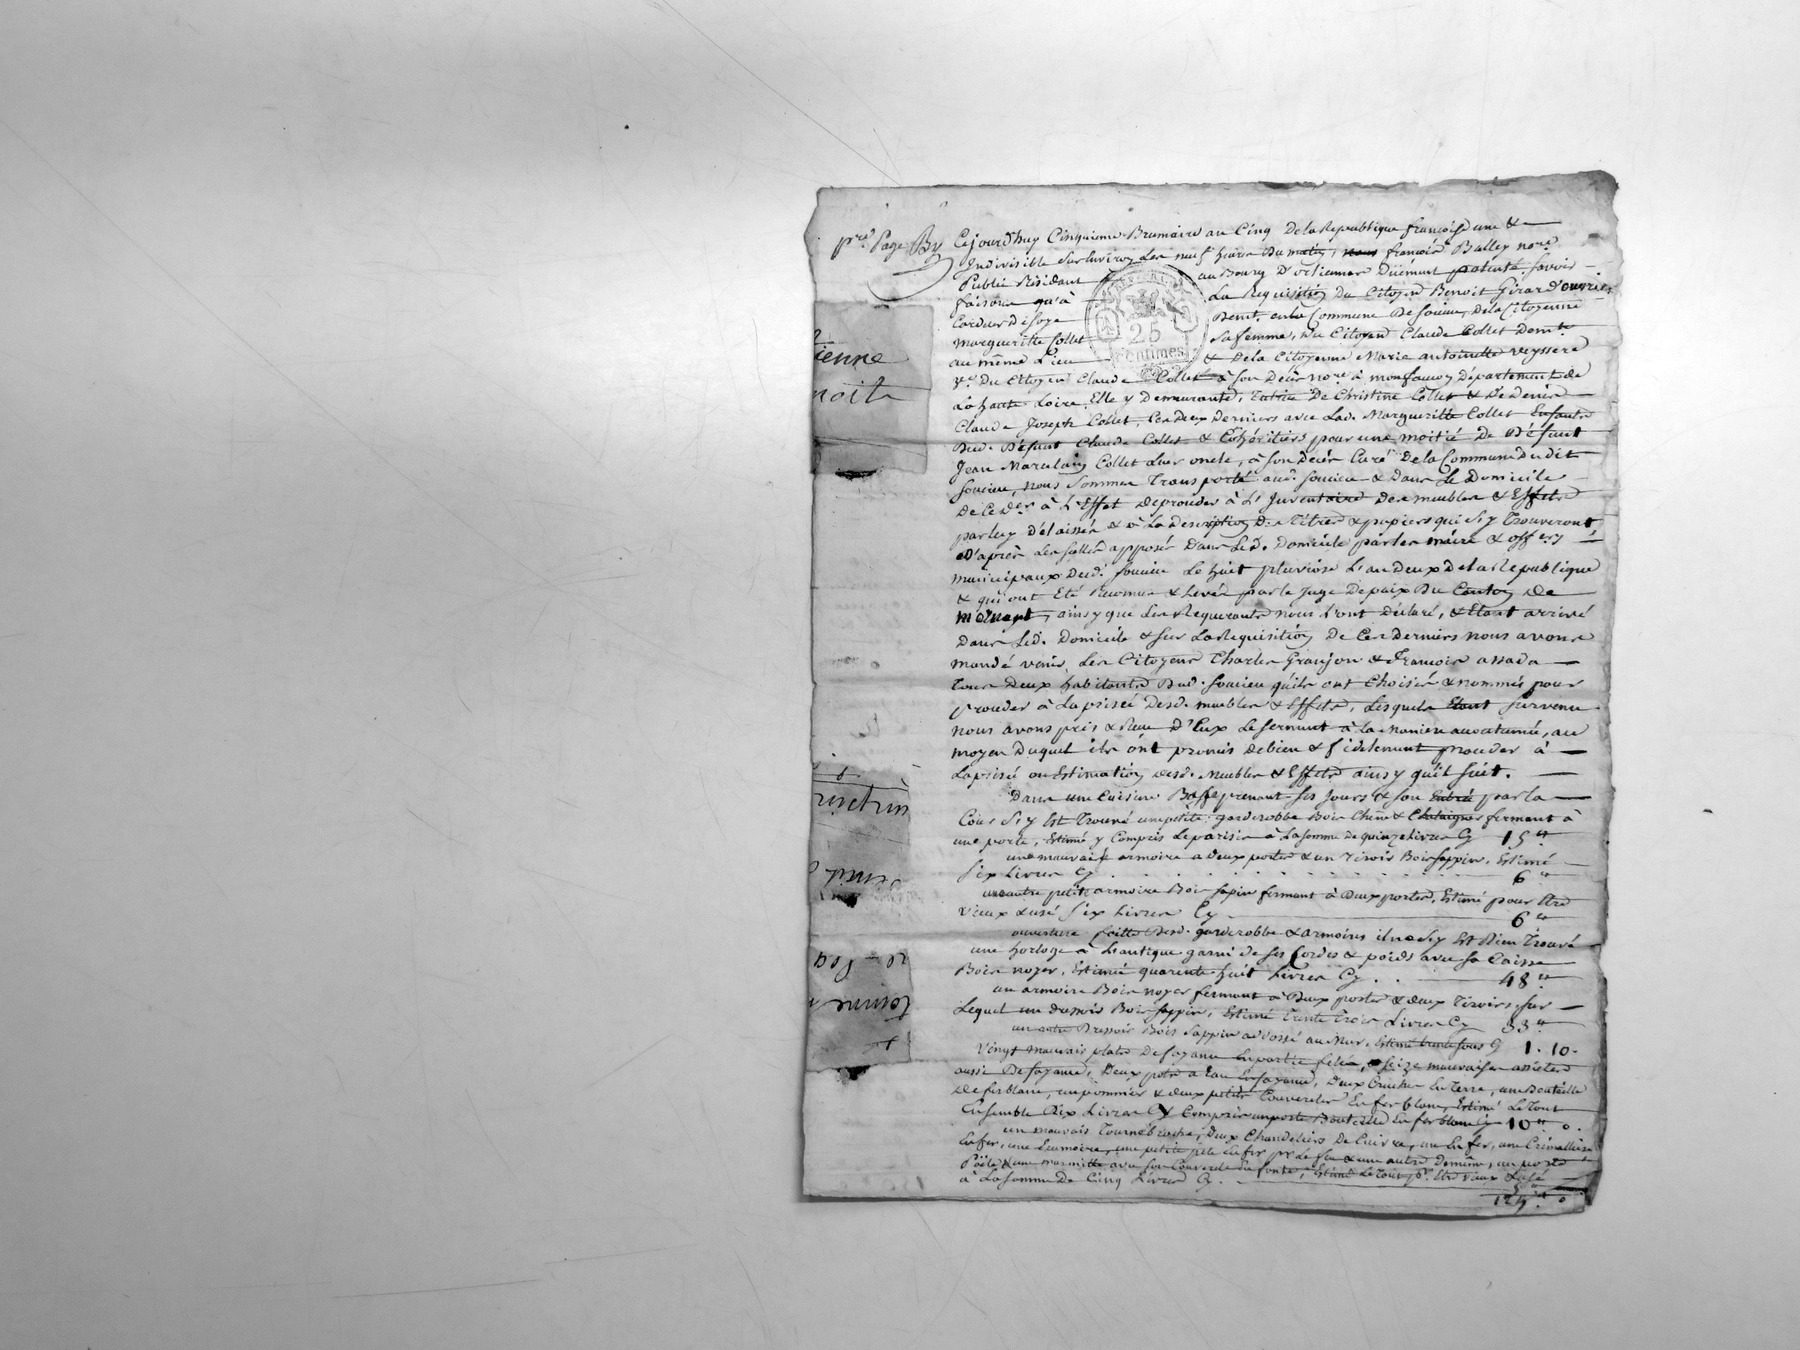 pre Page By
Cejourd'huy Cinquieme Brumaire an Cinq De la Republique françoise une &
Indivisible Sur Environ Les neuf heures Du matin, nous françois Balley nore
Public Résidant au Bourg D'orliennas Düement patenté Savoir
faisons qu'à La Requisition Du Citoyen Benoit Girard ouvrier
Cordier De soye Demt. en la Commune De soucieu, De la Citoyenne
Margueritte Collet Sa femme, Du Citoyen Claude Collet Domte
au même Lieu & De la Citoyenne Marie antoinette veyssere
Ve. Du Citoyen Claude Collet à son Décès nore à monfaucon Département de
La haute Loire, Elle y Demeurante, Tutrice De Christine Collet & De Denis
Claude Joseph Collet, Ces Deux Derniers avec Lad. Margueritte Collet Enfants
Dud. Défunt Claude Collet & Cohéritiers pour une moitié De Défunt
Jean Collet Leur oncle, à son Décès Curé De la Commune Dudit
Soucieu, nous Sommes Transporté aud. Soucieu & Dans Le Domicile
De ce Der à L'Effet De proceder à L'Inventaire Des meubles & Effets
par luy Délaissés & à La Description Des Titres & papiers qui s'y Trouveront
D'après Les scellés apposés Dans Led. Domicile par les maire & offers
municipaux Dud. Soucieu Le huit pluviôse L'an Deux De la Republique
& qui ont Eté Reconnus & Levés par le Juge De paix Du Canton de
mornant, ainsy que Les Requerants nous l'ont Déclaré, & Etant arrivé
Dans Led. Domicile & sur La Requisition De Ces Derniers nous avons
mandé venir Les Citoyens Charles Granjon & françois assada
Tous Deux habitants Dud. Soucieu qu'ils ont Choisis & nommés pour
proceder à La prisée Desd. meubles & Effets, Lesquels Etant survenu
nous avons pris & Reçu D'Eux Le serment à La maniere accoutumée, au
moyen Duquel ils ont promis De bien & fidelement proceder à
La prisée ou Estimation desd. Meubles & Effets ainsy qu'il suit.
Dans une Cuisine Basse prenant ses Jours & son Entrée par la
Cour S'y Est Trouvé une petite garderobbe Bois Chêne & Chataigner fermant à
une porte, Estimé y Compris à La somme De quinze Livres Cy 15"
une mauvaise armoire a Deux portes & un Tiroir Bois sappin, Estimé
six Livres Cy 6"
une autre petite armoire Bois sapin fermant à Deux portes, Estimé pour Etre
vieux & usé six Livres Cy 6"
ouverture faitte Desd. garderobbe & armoires il ne s'y Est Rien Trouvé
une horloge à L'antique garni de ses Cordes & poids avec sa Caisse
Bois noyer, Estimé quarente huit Livres Cy 48"
un armoire Bois noyer fermant à Deux portes & deux Tiroirs, sur
Lequel un dressoir Bois sappin, Estimé Trente Trois Livres Cy 33"
un autre Dressoir Bois sappin adossé au Mur, Estimé trente sous Cy 1. 10.
Vingt mauvais plats De fayance En partie félés, & seize mauvaises assietes
aussi De fayance, Deux pots a Eau En fayance, Deux Cruches En Terre, une Bouteille
De fer blanc, & deux petits Couvercles En fer blanc, Estimé Le Tout
Ensemble Dix Livres Cy Compris une Bouteille En fer blanc Cy 10" 0.
un mauvais Tournebroche, Deux Chandeliers De Cuivre, un En fer, une Crémaillère
En fer, une Ecumoire, une petite pele En fer pr Le feu & une autre Demême, un porte
Poële & une marmitte avec son Couvercle En fonte, Estimé Le Tout pr. Etre vieux & usé
à La somme De Cinq Livres Cy. 5"
124" 0